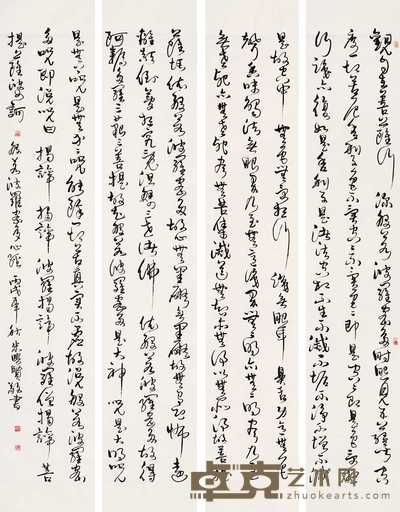 觀自在菩薩行深般若波羅蜜多時照見五蘊皆空
度一切苦厄舍利子色不異空空不異色色即是空空即是色受想
行識亦復如是舍利子是諸法空相不生不滅不垢不淨不增不減
是故空中無色無受想行識無眼耳鼻舌身意無色
聲香味觸法無眼界乃至無意識界無無明亦無無明盡乃至
無老死亦無老死盡無苦集滅道無智亦無得以無所得故菩提
薩埵依般若波羅蜜多故心無罣礙無罣礙故無有恐怖遠
離顛倒夢想究竟涅槃三世諸佛依般若波羅蜜多故得
阿耨多羅三藐三菩提故知般若波羅蜜多是大神咒是大明咒
是無上咒是無等等咒能除一切苦真實不虛故說般若波羅蜜
多咒即說咒曰揭諦揭諦波羅揭諦波羅僧揭諦菩
提薩婆訶 般若波羅蜜多心經 丙戌年秋 敬書
艺术网
zhuokearts.com